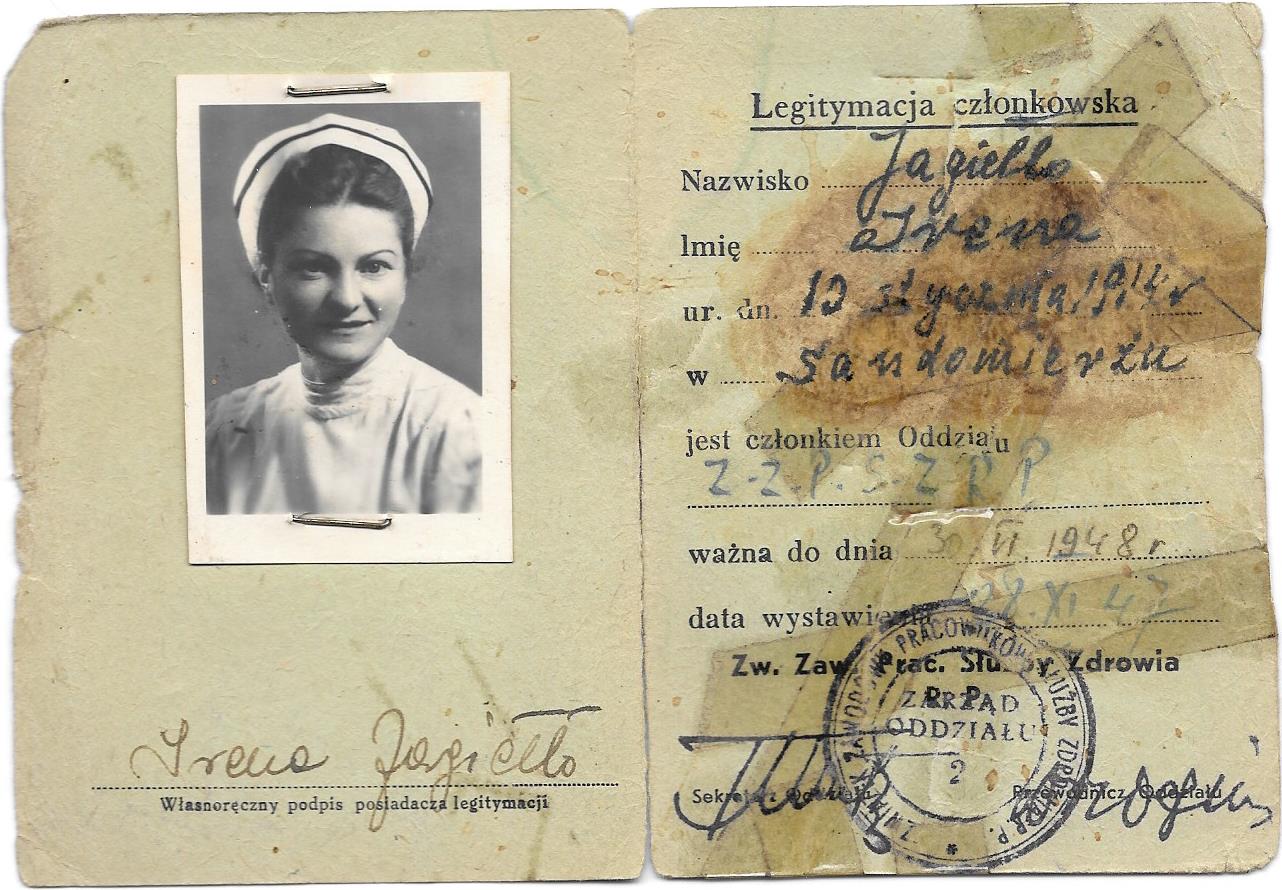 Irena Jagiełło
Własnoręczny podpis posiadacza legitymacji
Legitymacja członkowska
Nazwisko Jagiełło
Imię Irena
ur. dn. 13 stycznia 1914 r
w Sandomierzu
jest członkiem Oddziału
Z.Z.P.S.Z R P
ważna do dnia 30 VI. 1948 r
data wystawienia 28.XI 47
Zw. Zaw. Prac. Służby Zdrowia
R. P.
ZWIĄZEK ZAWODOWY PRACOWNIKÓW SŁUŻBY ZDROWIA R.P.
ZARZĄD
ODDZIAŁU
2
Sekretarz Oddziału Przewodnicz. Oddziału